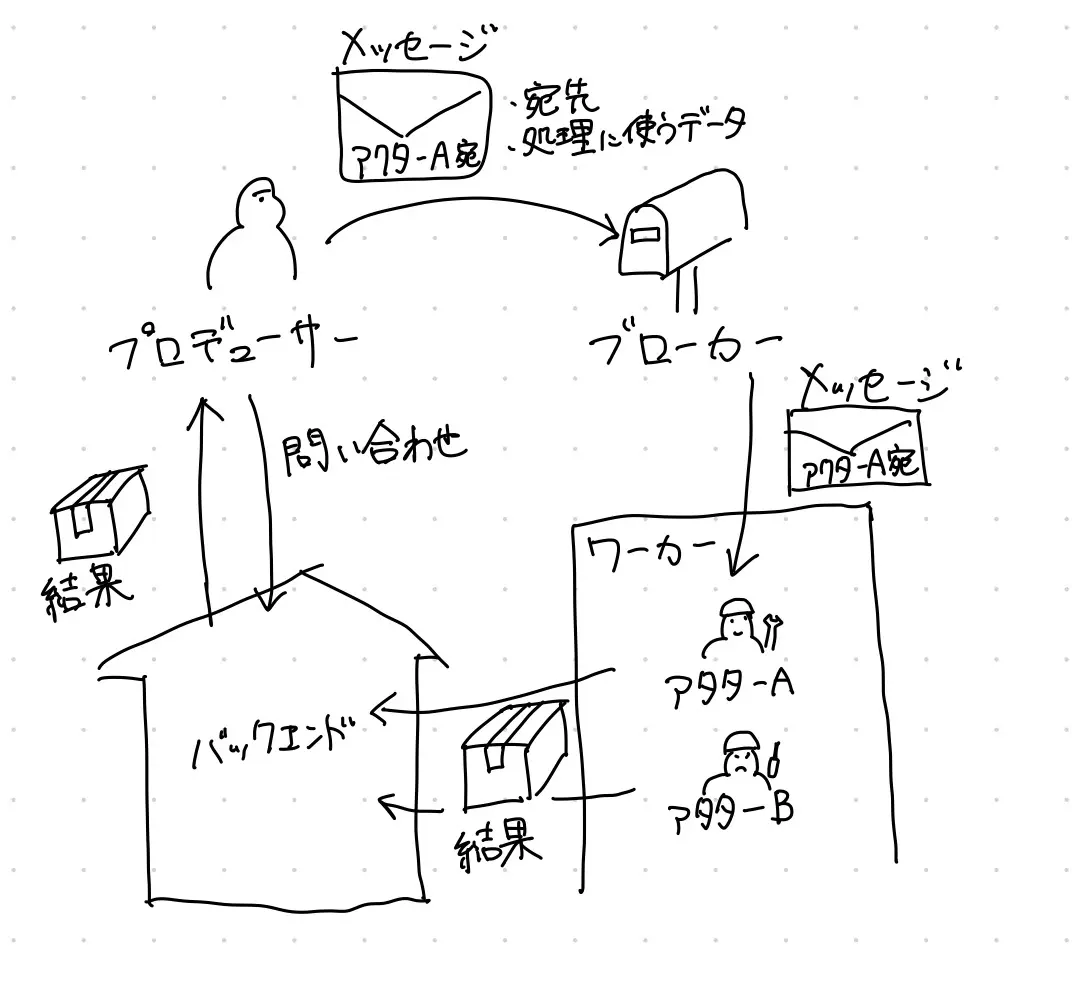 メッセージ
アクター A宛
・宛先
・処理に使うデータ
プロデューサー
ブローカー
メッセージ
アクター A宛
問い合わせ
結果
ワーカー
アクター A
バックエンド
アクター B
結果